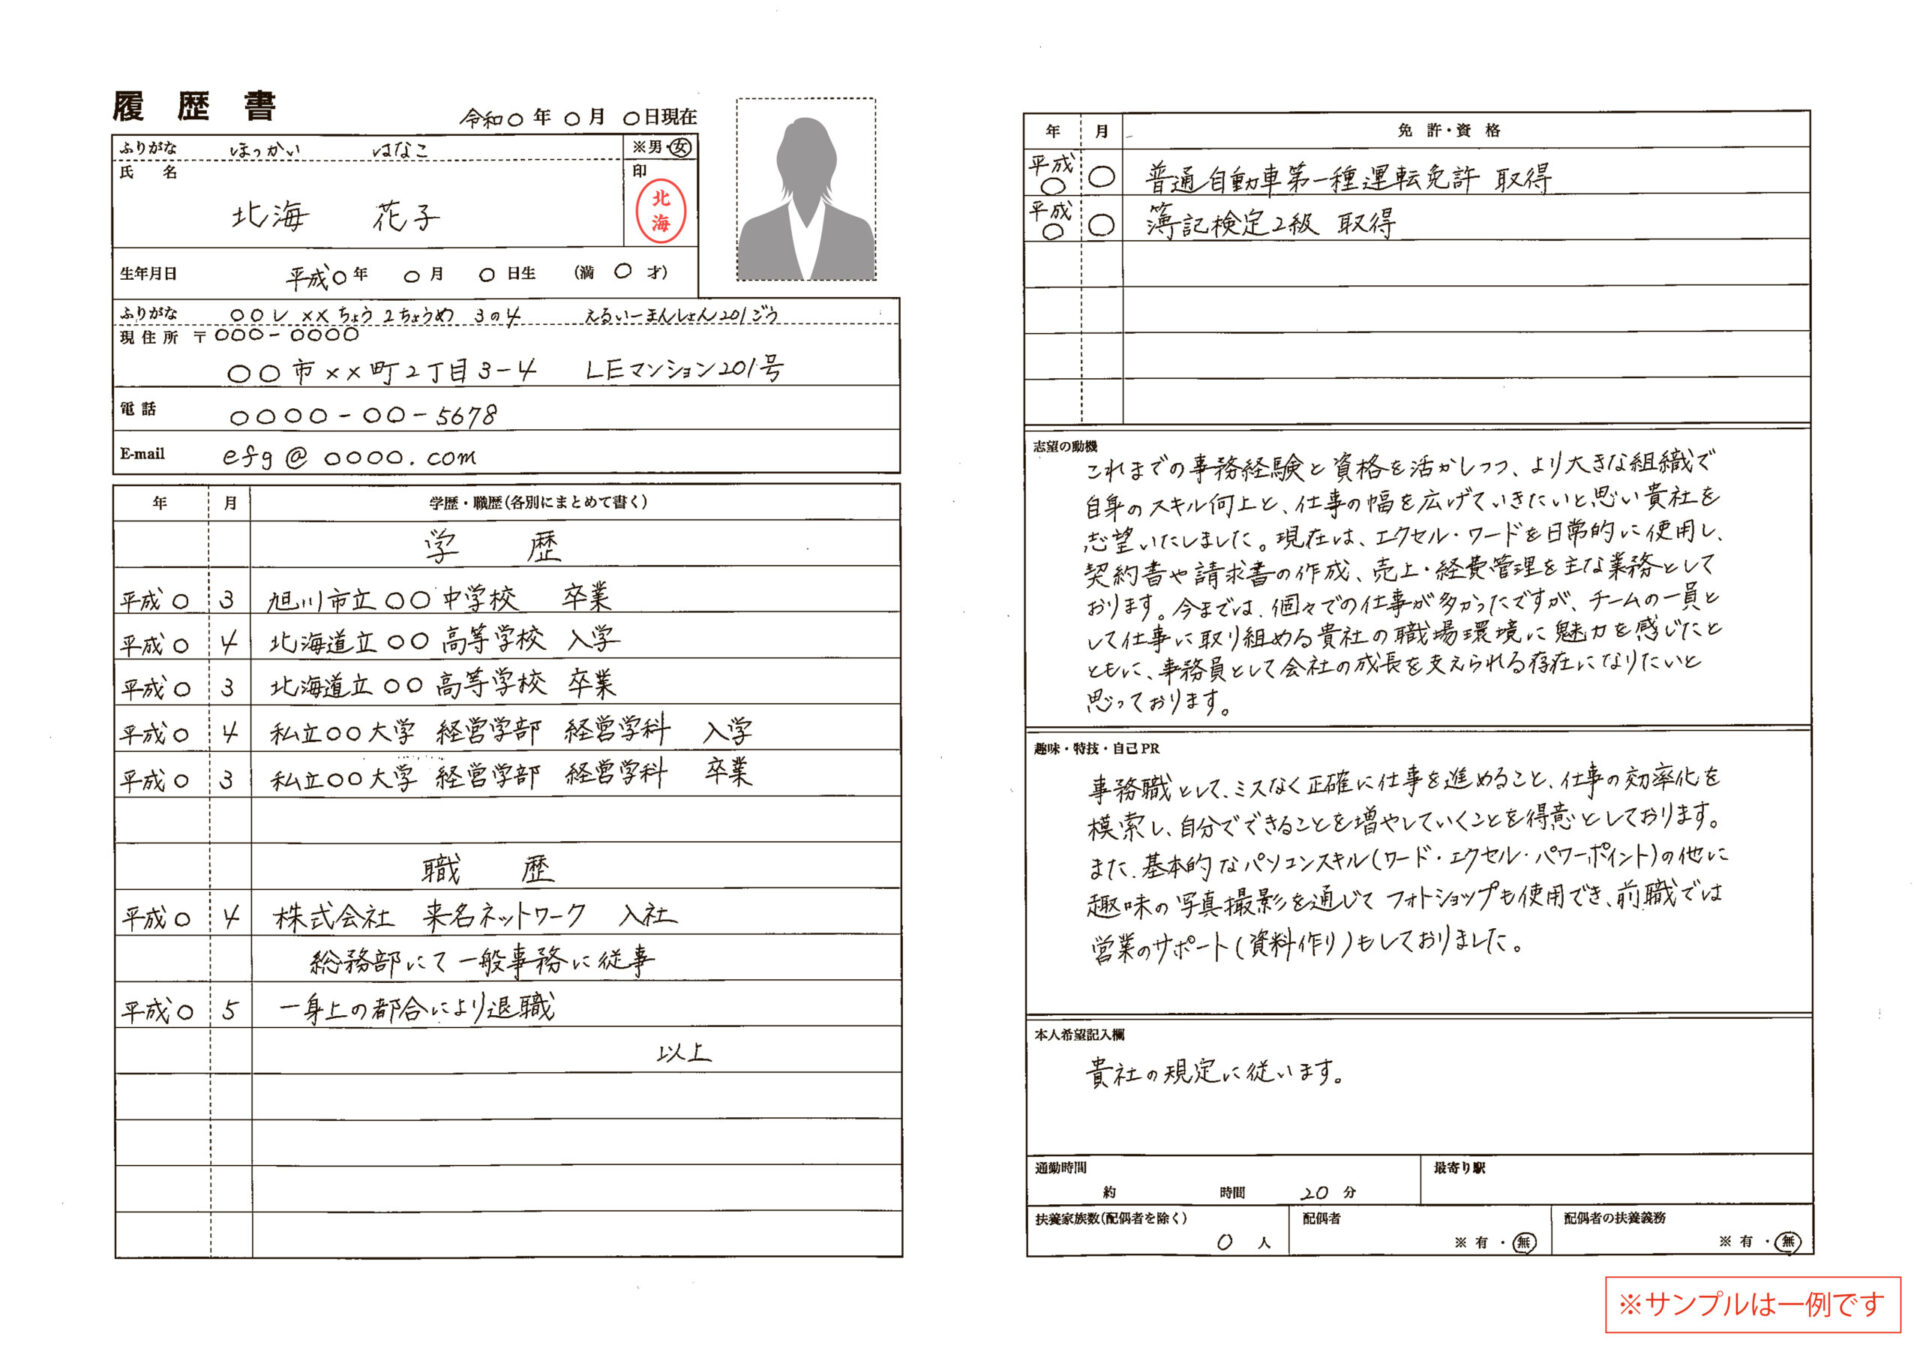 履歴書
令和○年○月○日現在
ふりがな ほっかい はなこ ※男・女
氏名 印
北海 花子
北海
生年月日 平成○年 ○月 ○日生 (満 ○ 才)
ふりがな ○○し ××ちょう 2ちょうめ 3の4 えるいーまんしょん201ごう
現住所 〒○○○-○○○○
○○市××町2丁目3-4 LEマンション201号
電話 ○○○○-○○-5678
E-mail efg@○○○○.com
年 月 学歴・職歴(各別にまとめて書く)
学 歴
平成○ 3 旭川市立○○中学校 卒業
平成○ 4 北海道立○○高等学校 入学
平成○ 3 北海道立○○高等学校 卒業
平成○ 4 私立○○大学 経営学部 経営学科 入学
平成○ 3 私立○○大学 経営学部 経営学科 卒業
職 歴
平成○ 4 株式会社 来名ネットワーク 入社
総務部にて一般事務に従事
平成○ 5 一身上の都合により退職
以上
年 月 免許・資格
平成○ ○ 普通自動車第一種運転免許 取得
平成○ ○ 簿記検定2級 取得
志望の動機
これまでの事務経験と資格を活かしつつ、より大きな組織で
自身のスキル向上と、仕事の幅を広げていきたいと思い貴社を
志望いたしました。現在は、エクセル・ワードを日常的に使用し、
契約書や請求書の作成、売上・経費管理を主な業務として
おります。今までは、個々での仕事が多かったですが、チームの一員と
して仕事に取り組める貴社の職場環境に魅力を感じたと
ともに、事務員として会社の成長を支えられる存在になりたいと
思っております。
趣味・特技・自己PR
事務職として、ミスなく正確に仕事を進めること、仕事の効率化を
模索し、自分でできることを増やしていくことを得意としております。
また、基本的なパソコンスキル(ワード・エクセル・パワーポイント)の他に
趣味の写真撮影を通じてフォトショップも使用でき、前職では
営業のサポート(資料作り)もしておりました。
本人希望記入欄
貴社の規定に従います。
通勤時間 最寄り駅
約 時間 20 分
扶養家族数(配偶者を除く) 配偶者 配偶者の扶養義務
0 人 ※有・無 ※有・無
※サンプルは一例です